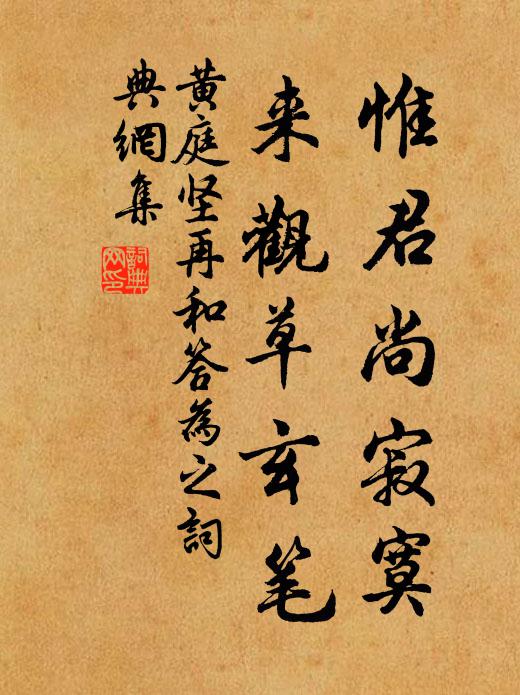 惟君尚寂寞
来觀草玄笔
黄庭坚再和答為之詞
典網集
詞典網印